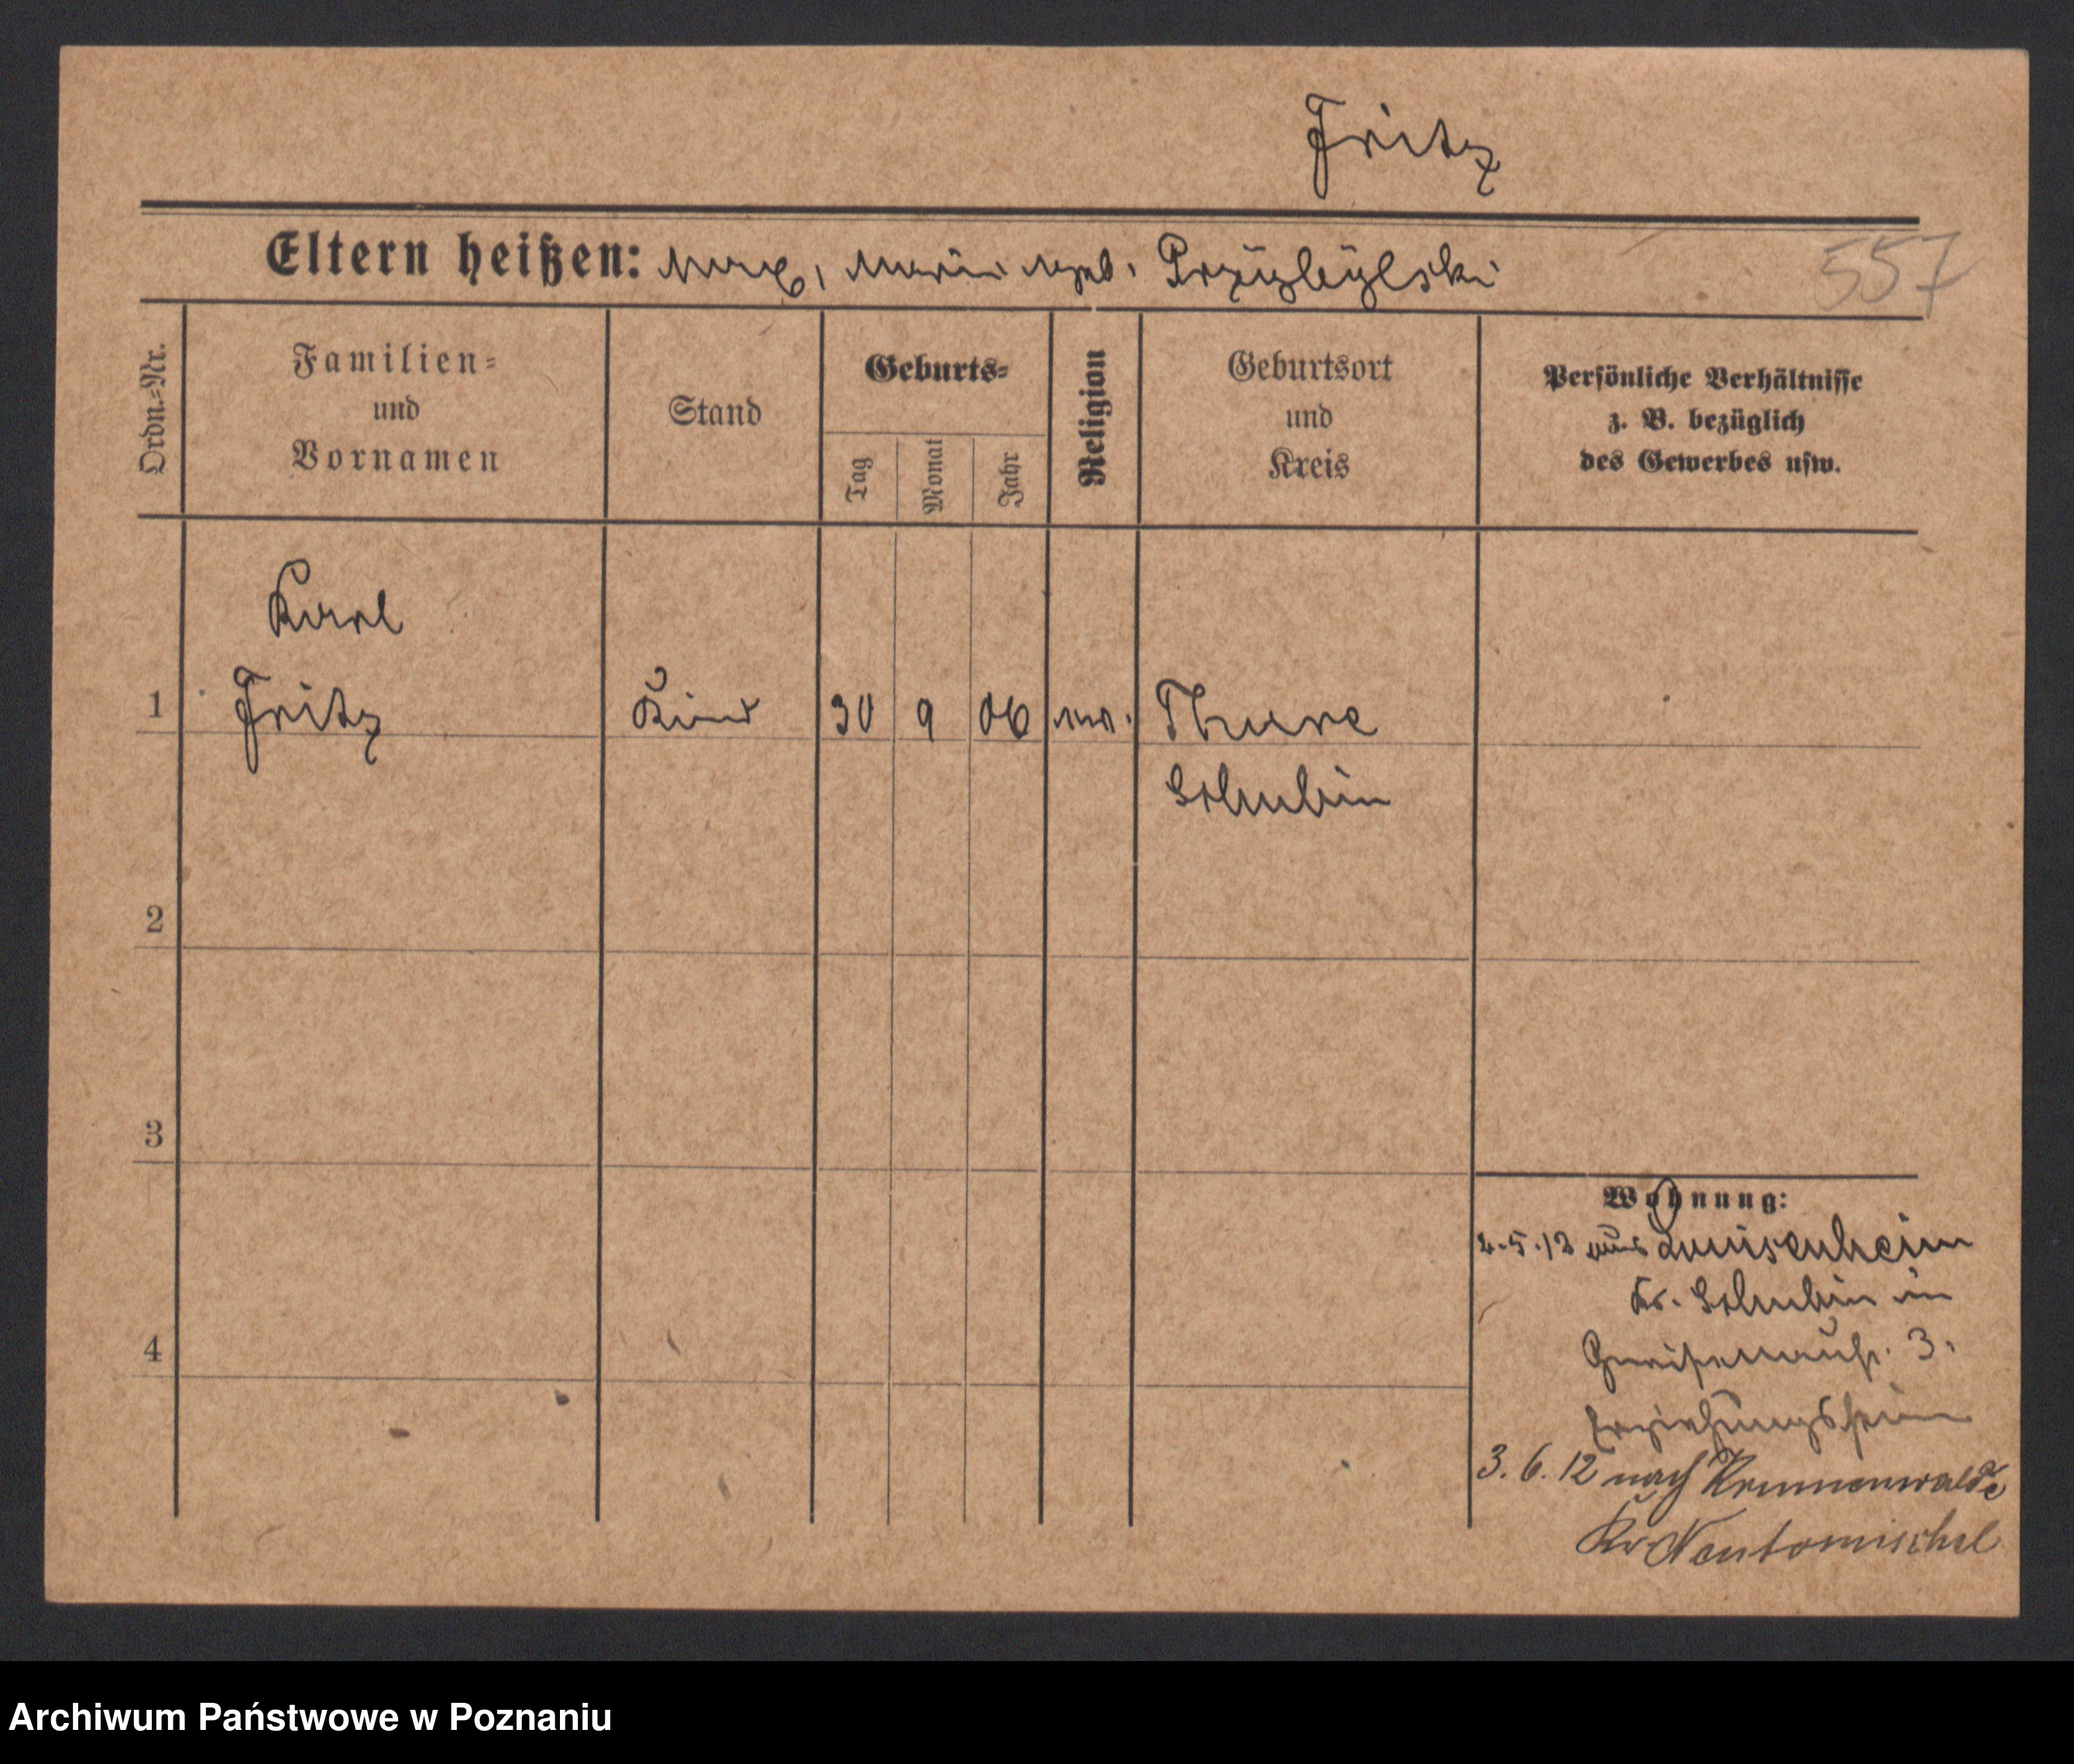 Fritz
Eltern heißen: Max, Maria geb. Przybylski
557
Ordn.=Nr.
Familien=
und
Vornamen
Stand
Geburts=
Tag
Monat
Jahr
Religion
Geburtsort
und
Kreis
Persönliche Verhältnisse
z. B. bezüglich
des Gewerbes usw.
Karl
1 Fritz Kind 30 9 06 Thure
Schubin
2
3
4
Wohnung:
2.5.12 aus Luisenheim
Kr. Schubin in
Gneisenaustr. 3.
Erziehungsheim
3. 6. 12 nach
Kr Neutomischel
Archiwum Państwowe w Poznaniu